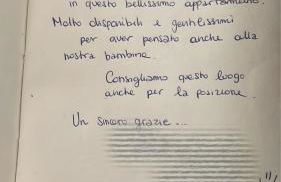 in questo bellissimo appartamento.
Molto disponibili e gentilissimi
per aver pensato anche alla
nostra bambina.
Consigliamo questo luogo
anche per la posizione.
Un sincero grazie...